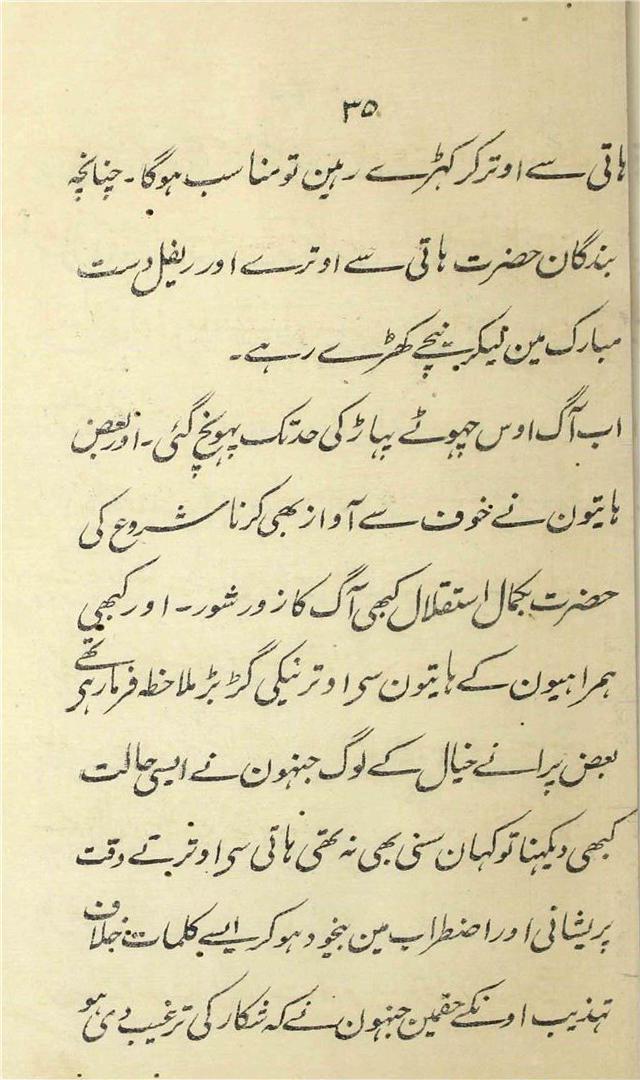 ۳۵
ہاتی سے اوترکر کہڑے رہین تو مناسب ہوگا۔ چنانچہ
بندگان حضرت ہاتی سے اوترے اور ریفل دست
مبارک مین لیکر نیچے کھڑے رہے۔
اب آگ اوس چہوٹے پہاڑ کی حد تک پہونچ گئی۔ اور بعض
ہاتیون نے خوف سے آواز بھی کرنا شروع کی
حضرت بکمال استقلال کبھی آگ کا زور شور۔ اور کبھی
ہمراہیون کے ہاتیون سی اوترنیکی گڑبڑ ملاحظہ فرمارہی تھے
بعض پرانے خیال کے لوگ جنہون نے ایسی حالت
کبھی دیکہنا تو کہان سنی بھی نہ تھی ہاتی سی اوترتے وقت
پریشانی اور اضطراب مین بیخود ہوکر ایسے کلمات خلاف
تہذیب اونکے حقمین جنہون نے کہ شکار کی ترغیب دی ہو